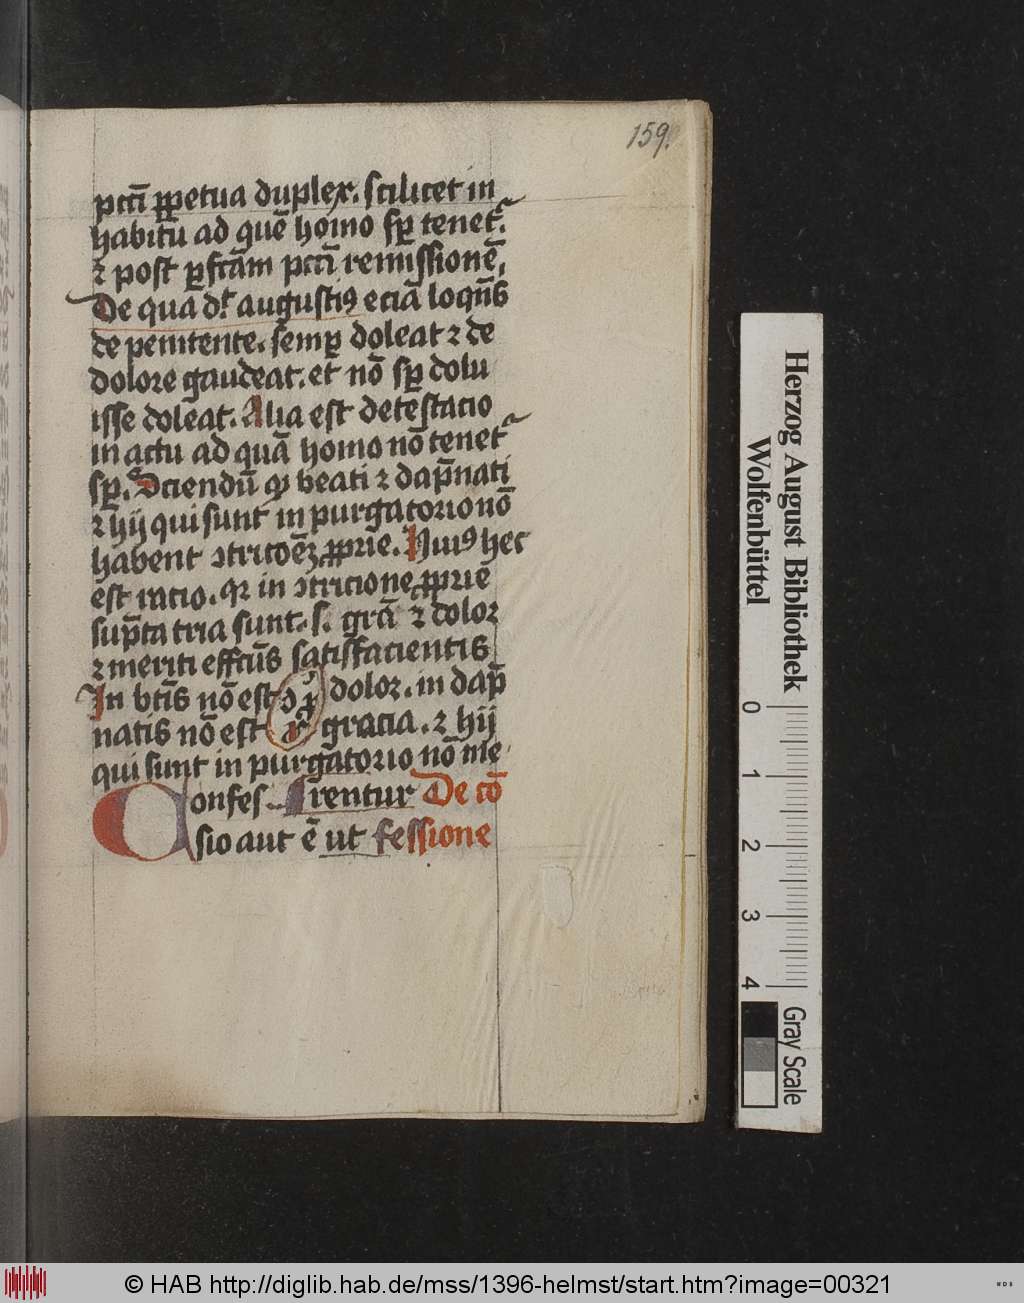 159.
pctī ꝑpetua duplex. scilicet in
habitu ad quē homo sꝑ tenet᷑.
⁊ post ꝑfctām pctī remissionē,
De qua dꝭ augustiꝰ eciā loqn̄s
de penitente. semꝑ doleat ⁊ de
dolore gaudeat. et nō sꝑ dolu
isse doleat. Alia est detestacio
in actu ad quā homo nō tenet᷑
sꝑ. Sciendū ꝙ beati ⁊ dap̄nati
⁊ hij qui sunt in purgatorio nō
habent ꝓprie. Huiꝰ hec
est racio. qꝛ in ↄtricione ꝓpriē
sup̄ta tria sunt. s. grā ⁊ dolor
⁊ meriti effctūs satisfacientis
In btīs nō est dolor. in dap̄
natis nō est gracia. ⁊ hij
qui sunt in purgatorio nō me
rentur De cō
Confes
sio aut ē ut fessione
Herzog August Bibliothek
Wolfenbüttel
0 1 2 3 4
Gray Scale
© HAB http://diglib.hab.de/mss/1396-helmst/start.htm?image=00321